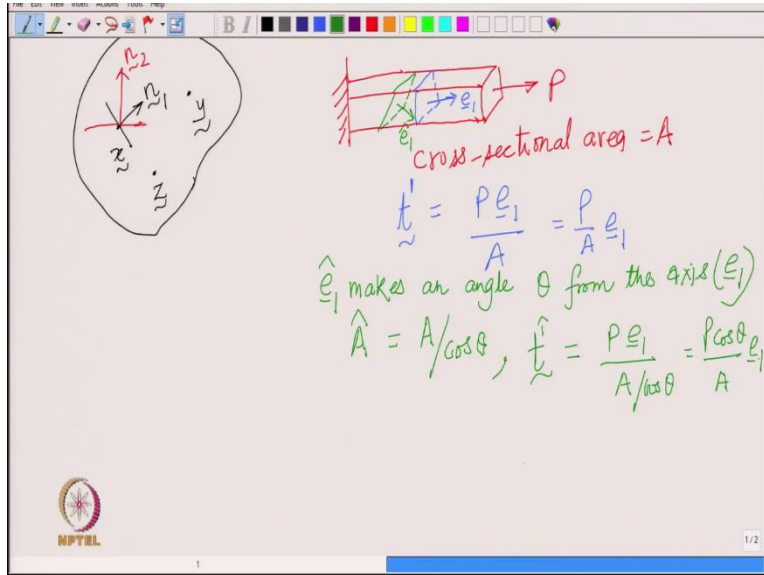 File Edit View Insert Actions Tools Help
B I
n̰2
n̰1
y̰
x̰
z̰
e̲1
ê1
P
cross-sectional area = A
t̰¹ = P e̲1 / A = P/A e̲1
ê1 makes an angle θ from the axis (e̲1)
Â = A/cosθ, t̰^1̂ = P e̲1 / A/cosθ = P cosθ / A e̲1
NPTEL
1/2
1